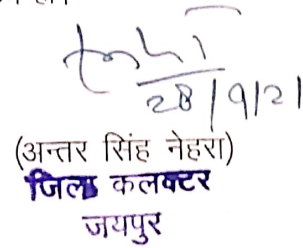 28/9/21
(अन्तर सिंह नेहरा)
जिला कलक्टर
जयपुर